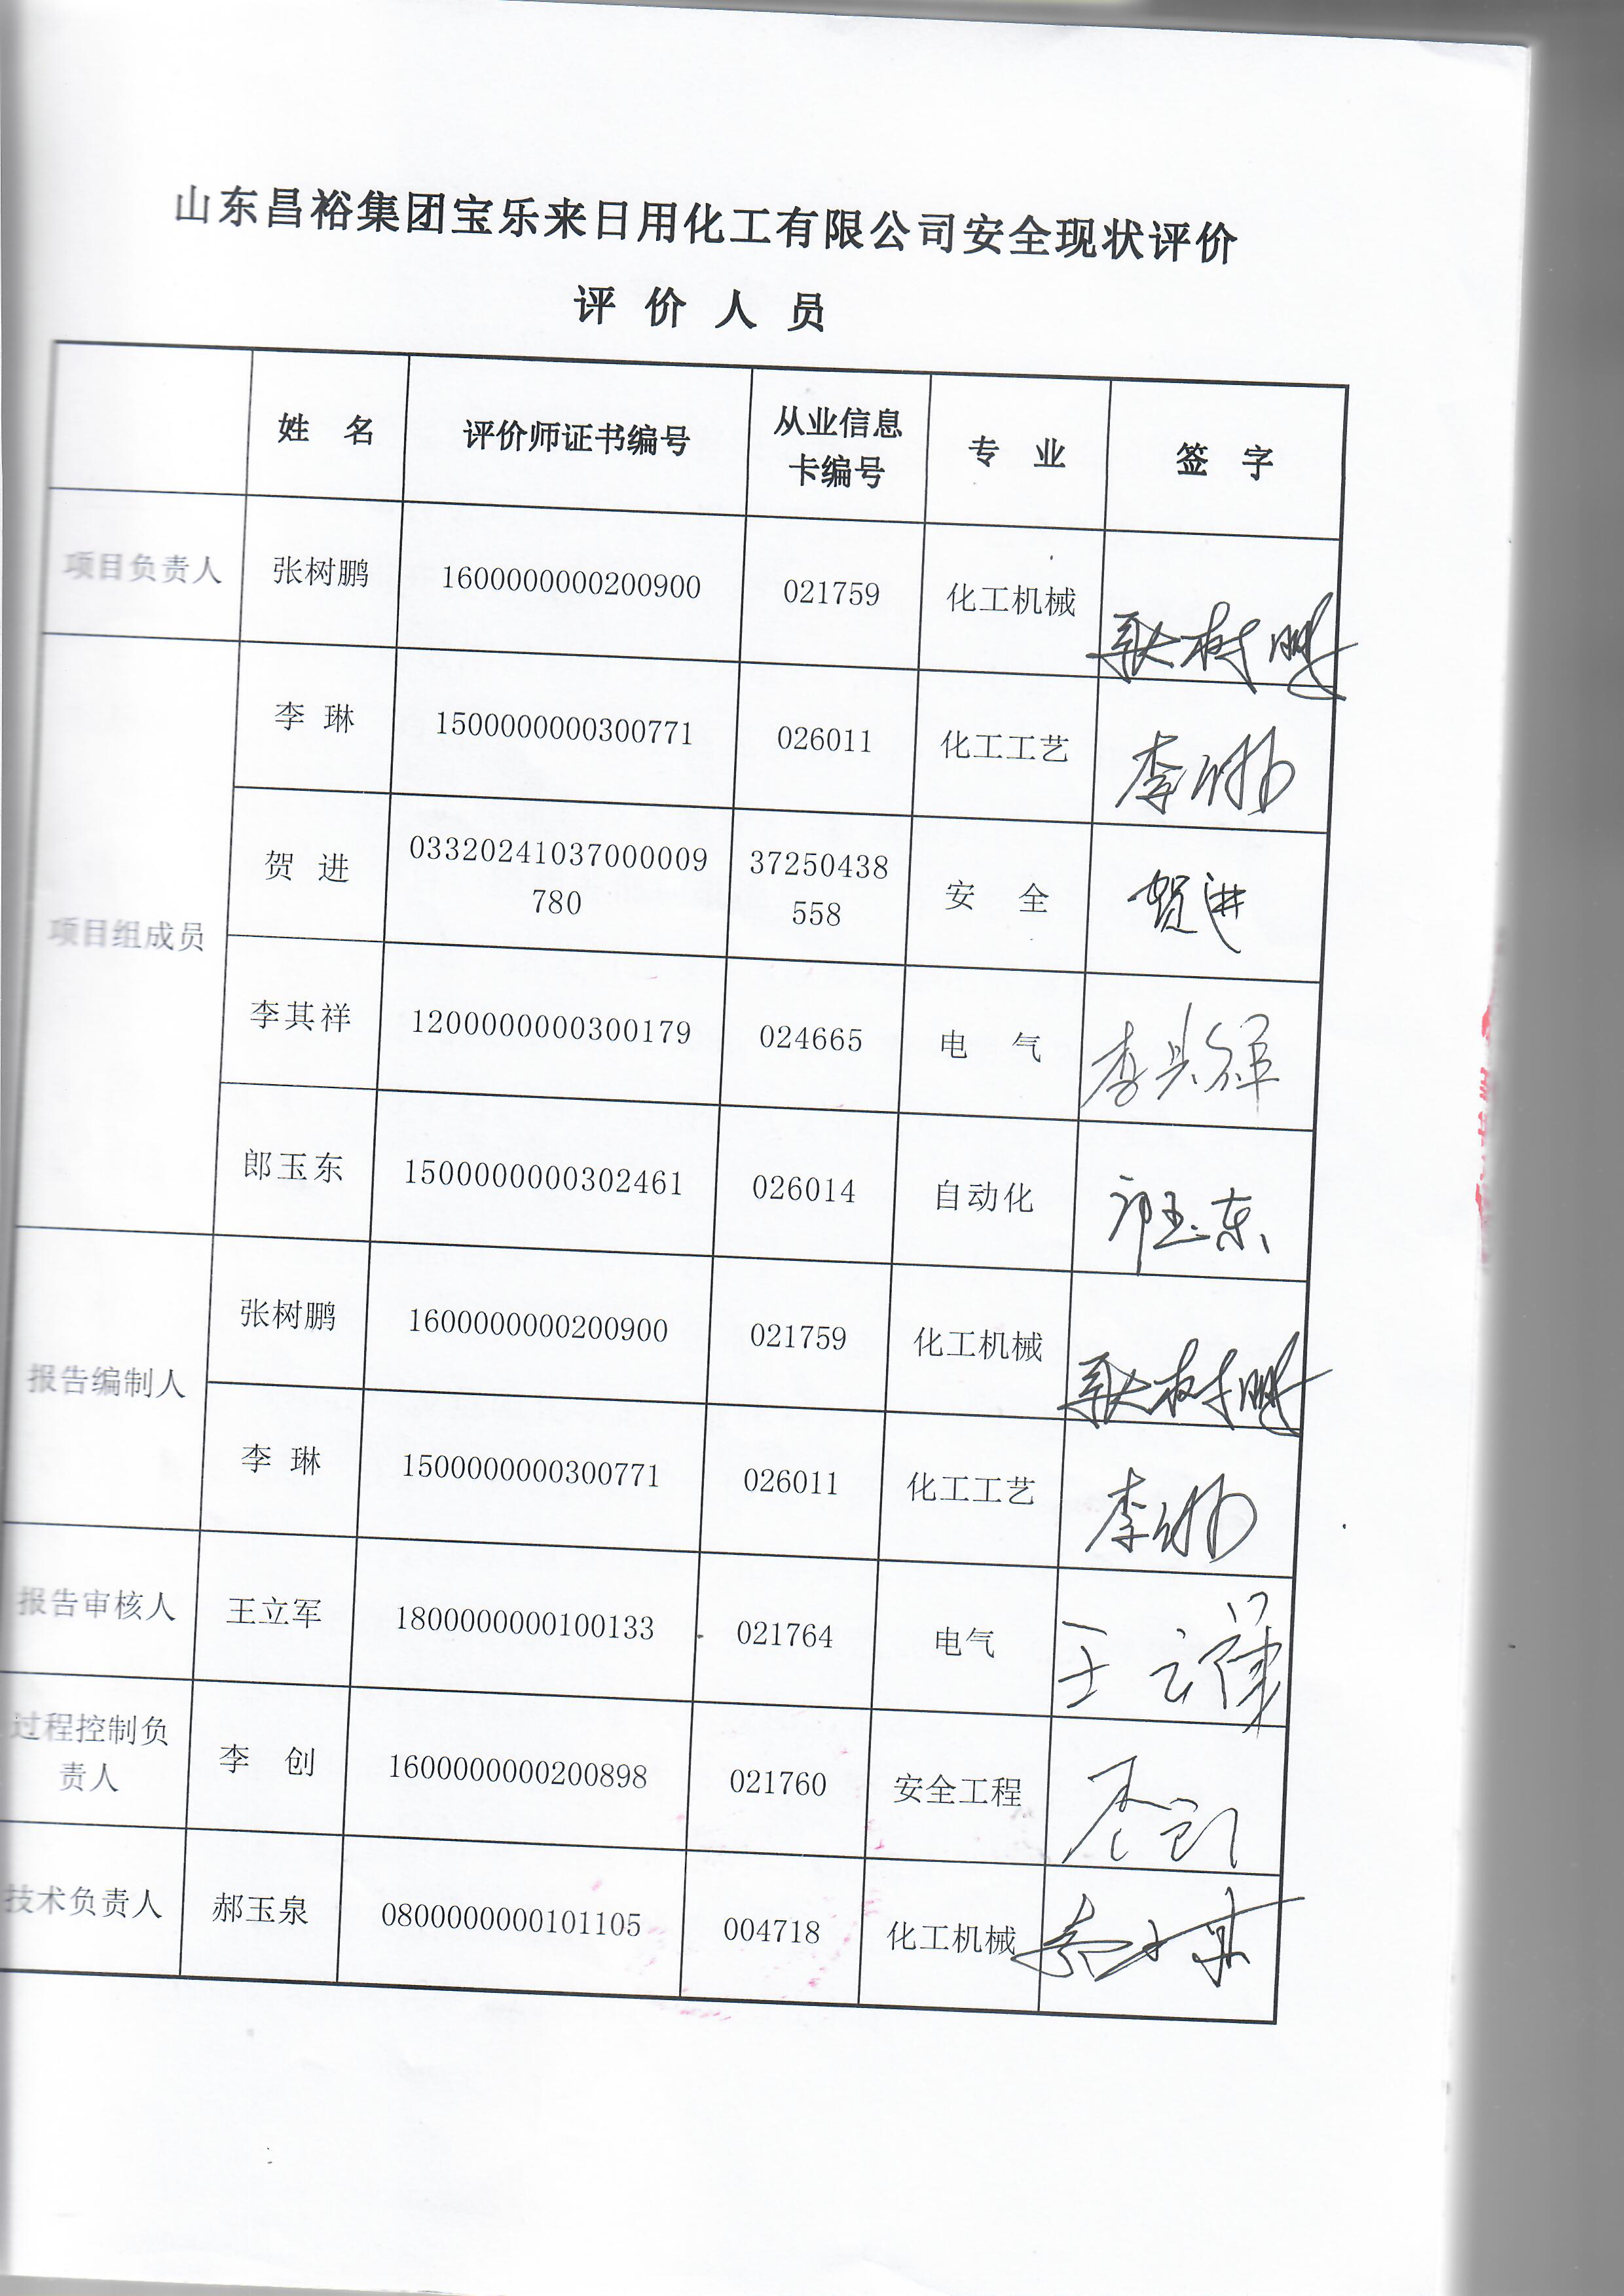 山东昌裕集团宝乐来日用化工有限公司安全现状评价
评价人员
姓 名 评价师证书编号 从业信息卡编号 专 业 签 字
项目负责人 张树鹏 1600000000200900 021759 化工机械 张树鹏
项目组成员 李 琳 1500000000300771 026011 化工工艺 李琳
贺 进 03320241037000009780 37250438558 安 全 贺进
李其祥 1200000000300179 024665 电 气 李其祥
郎玉东 1500000000302461 026014 自动化 郎玉东
报告编制人 张树鹏 1600000000200900 021759 化工机械 张树鹏
李 琳 1500000000300771 026011 化工工艺 李琳
报告审核人 王立军 1800000000100133 021764 电气 王立军
过程控制负责人 李 创 1600000000200898 021760 安全工程 李创
技术负责人 郝玉泉 0800000000101105 004718 化工机械 郝玉泉